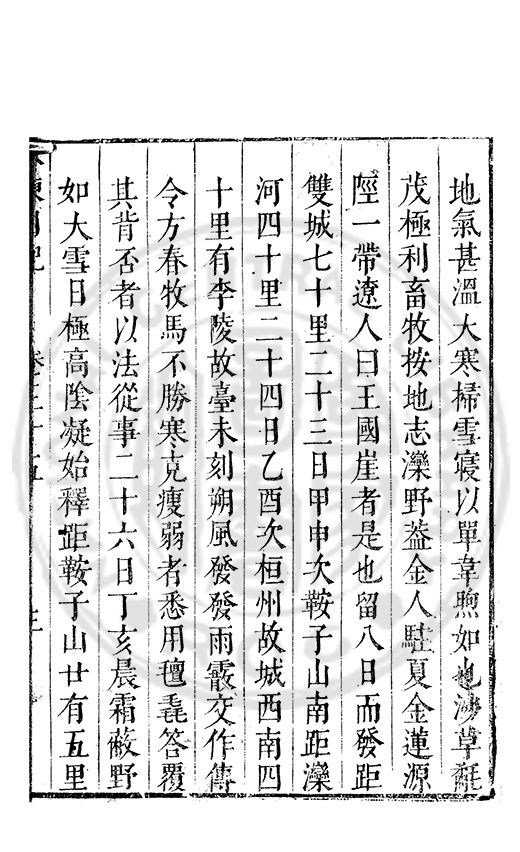 地氣甚溫大寒掃雪寢以單韋煦如也沙草氄
茂極利畜牧按地志灤野葢金人駐夏金蓮源
陘一帶遼人曰王國崖者是也留八日而發距
雙城七十里二十三日甲申次鞍子山南距灤
河四十里二十四日乙酉次桓州故城西南四
十里有李陵故臺未刻朔風發發雨霰交作傳
令方春牧馬不勝寒克瘦弱者悉用氊毳荅覆
其背否者以法從事二十六日丁亥晨霜蔽野
如大雪日極高陰凝始釋距鞍子山廿有五里
卷三十五